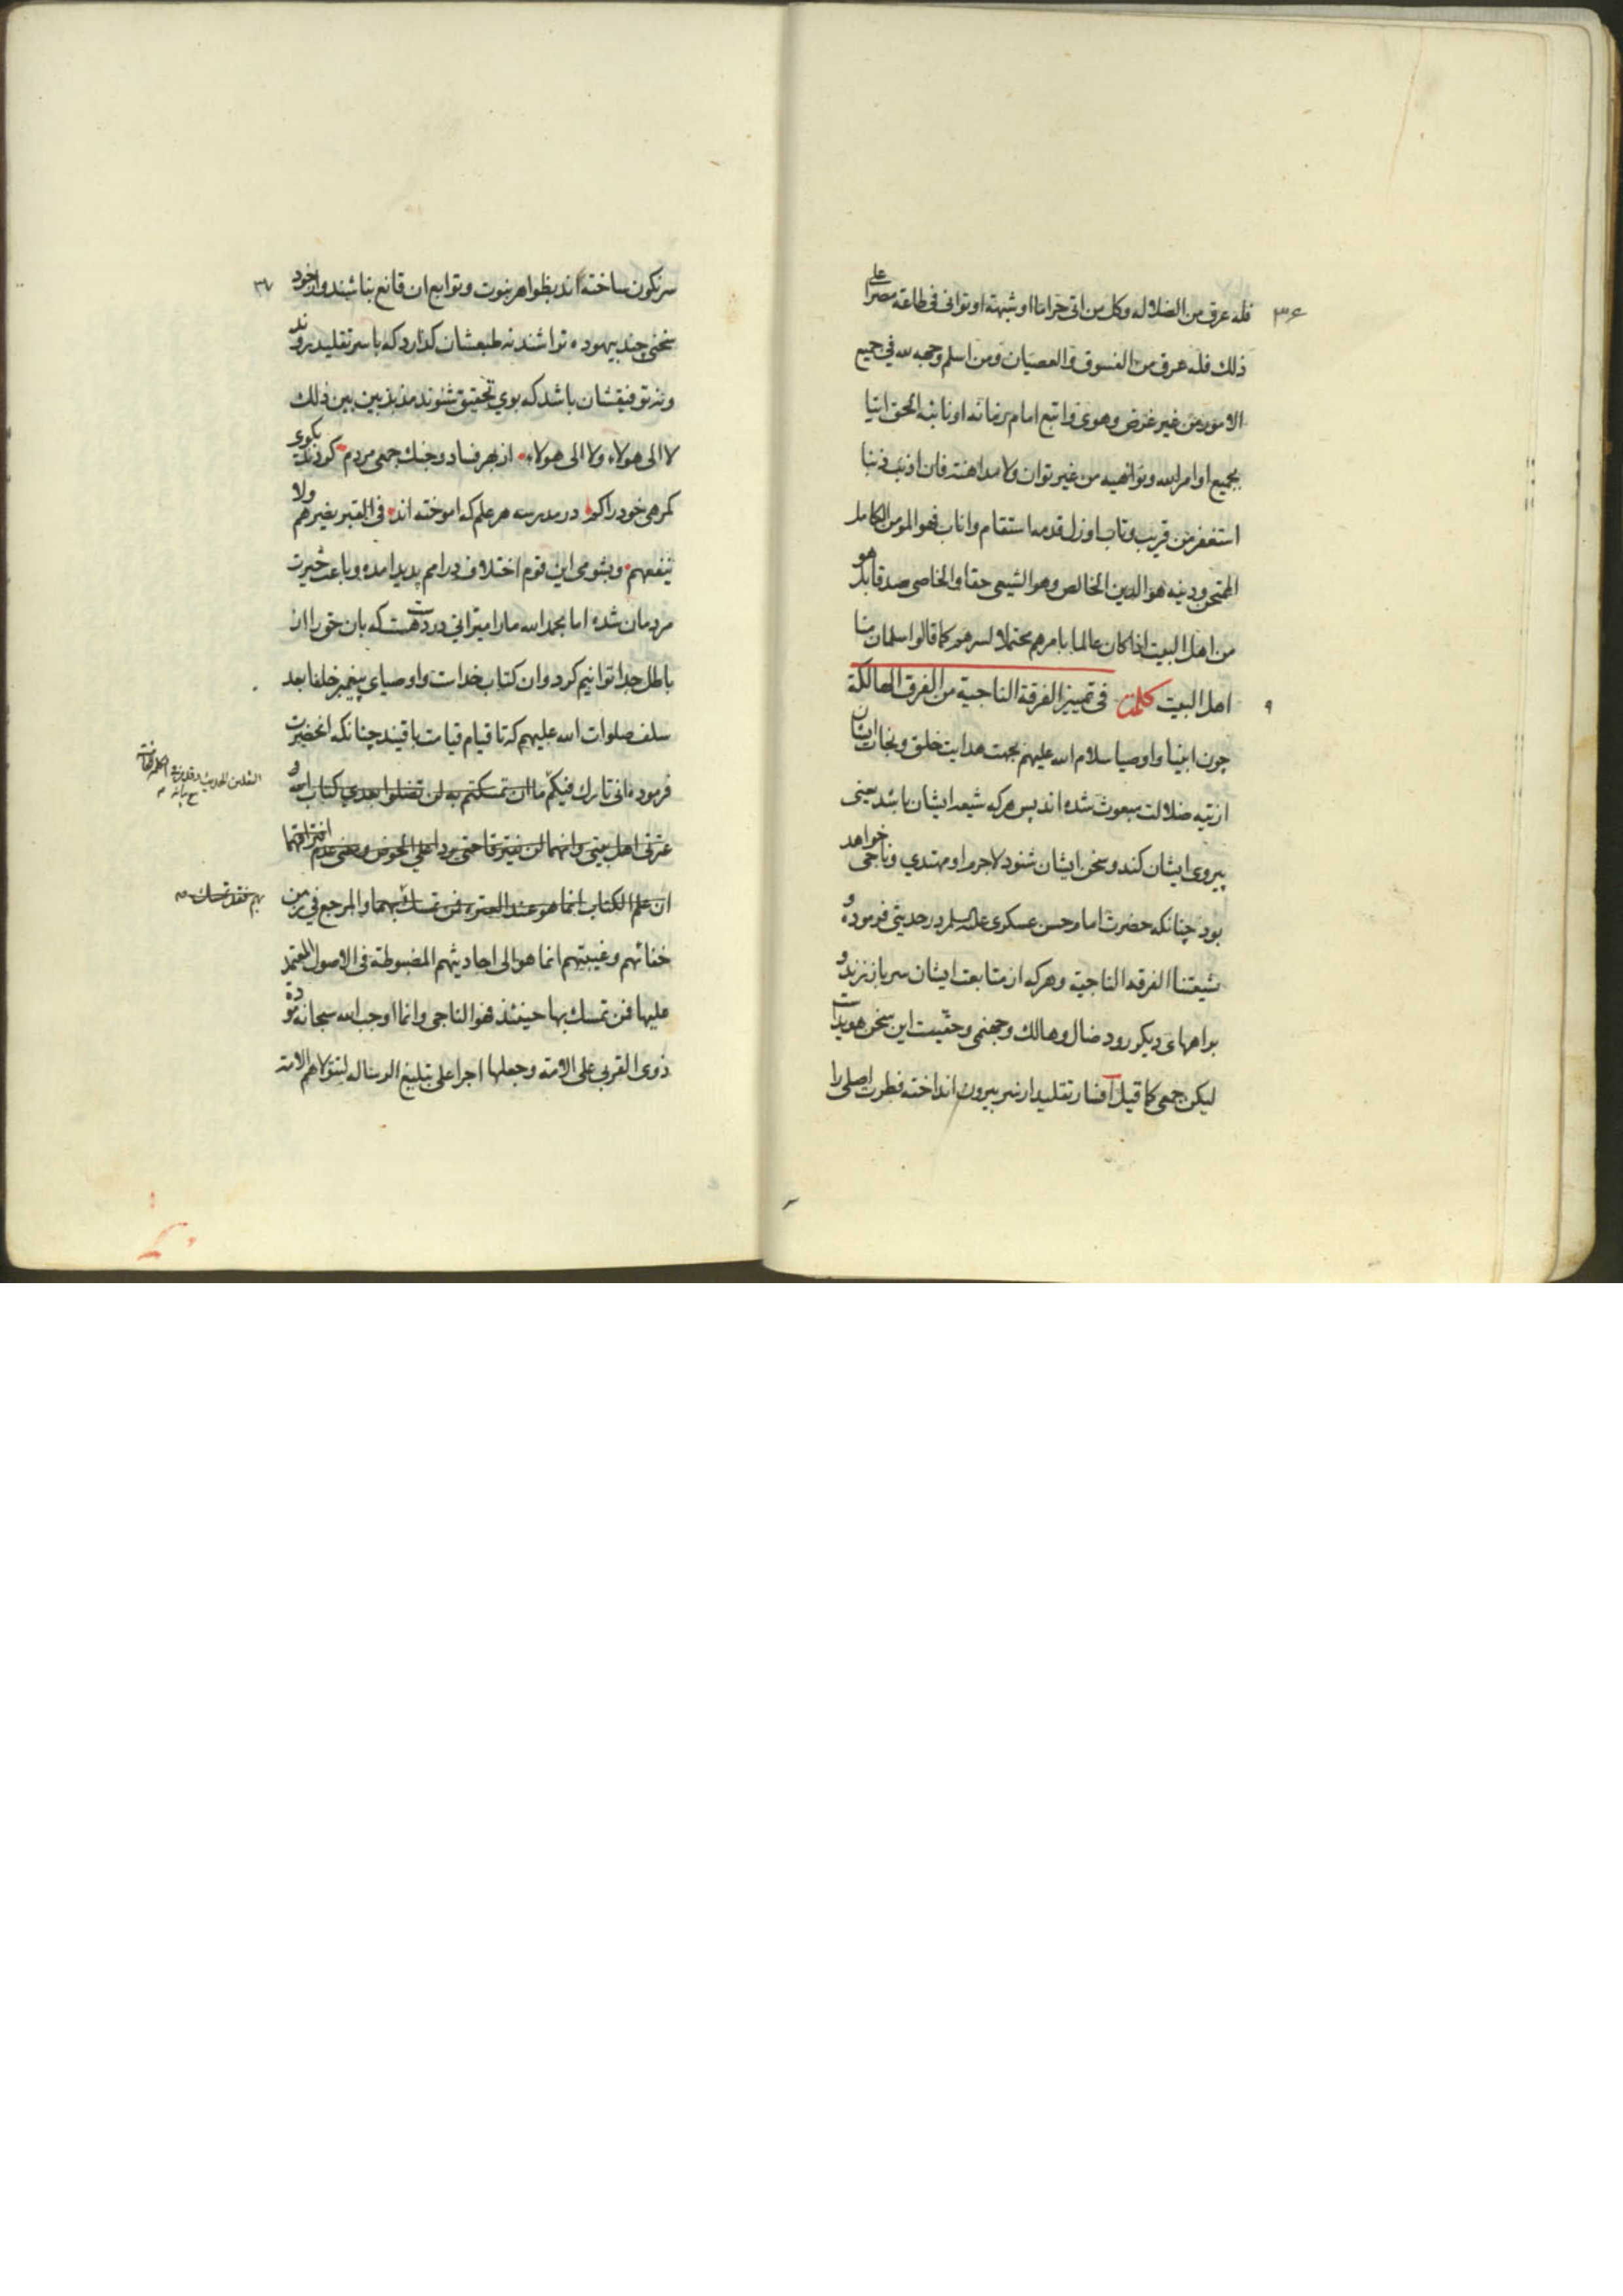 ۳۶
فله عرق من الضلاله وکل من اتی حراما او شبهة او توانی فی طاعة مصرا علی
ذلك فله عرق من الفسوق والعصیان ومن اسلم وجهه لله فی جمیع
الامور من غیر غرض وهوی واتبع امام زمانه او نائبه الحق اتیا
بجمیع اوامر الله ونواهیه من غیر توان ولا مداهنة فان اذنب ذنبا
استغفر من قریب وتاب او زل قدمه استقام واناب فهو المومن الکامل
الممتحن ودینه هو الدین الخالص وهو الشیعی حقا والخاصی صدقا بل هو
من اهل البیت اذا کان عالما بامرهم محتملا لسرهم کما قالوا سلمان منا
۹
اهل البیت کلمة فی تمییز الفرقة الناجیة من الفرق الهالکة
چون انبیا و اوصیا سلام الله علیهم بجهت هدایت خلق و نجات ایشان
از تیه ضلالت مبعوث شده اند پس هرکه شیعه ایشان باشد یعنی
پیروی ایشان کند و سخن ایشان شنود لاجرم او مهتدي و ناجی خواهد
بود چنانکه حضرت امام حسن عسکری علیه السلم در حدیثی فرموده و
شیعتنا الفرقه الناجیة و هرکه از متابعت ایشان سر باز زند و
براههای دیکر رود ضال و هالك و جهنمی و حقیت این سخن هویداست
لیکن جمعی کما قیل افسار تقلید از سر بیرون انداخته فطرت اصلی را
۳۷
سرنکون ساخته اند بظواهر نبوت و توابع ان قانع نباشند و از خود
سخنی چند بیهوده تراشند نه طبعشان کذارد که باسر تقلید روند
و نه توفیقشان باشد که بوي تحقیق شنوند مذبذبین بین ذلك
لا الی هولاء ولا الی هولاء از بهر فساد و جنك جمعی مردم کردند بکوی
کمرهی خود را کم در مدرسه هر علم که اموخته اند فی القبر یضرهم ولا
ینفعهم و بشومی این قوم اختلاف در امم پدید امده و باعث حیرت
مردمان شده اما بحمد الله ما را میزانی در دست هست که بان حق را از
باطل جدا توانیم کرد و ان کتاب خداست و اوصیای پیغمبر خلفا بعد
سلف صلوات الله علیهم که تا قیام قیامت باقیند چنانکه انحضرت
فرموده انی تارك فیکم ما ان تمسکتم به لن تضلوا بعدي کتاب الله و
عترتی اهل بیتی وانهما لن یفترقا حتی یردا علي الحوض ومعنی عدم افتراقهما
ان علم الکتاب انما هو عند العترة فمن تمسك بهما والمرجع فی زمن
بهم فقد تمسك
خفائهم وغیبتهم انما هو الی احادیثهم المضبوطة فی الاصول المعتمد
علیها فمن تمسك بها حینئذ فهو الناجی وانما اوجب الله سبحانه مودة
ذوی القربی علی الامة وجعلها اجرا علی تبلیغ الرساله لتتولاهم الامة